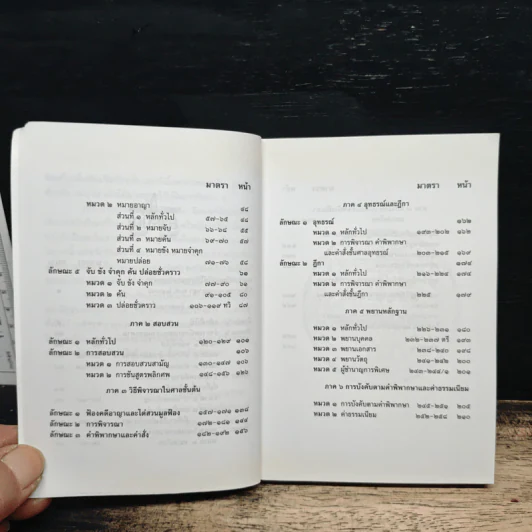 มาตรา หน้า
หมวด ๒ หมายอาญา ๕๔
ส่วนที่ ๑ หลักทั่วไป ๕๗-๖๕ ๕๔
ส่วนที่ ๒ หมายจับ ๖๖-๖๘ ๕๕
ส่วนที่ ๓ หมายค้น ๖๙-๗๐ ๕๗
ส่วนที่ ๔ หมายขัง หมายจำคุก
หมายปล่อย ๗๑-๗๖ ๕๘
ลักษณะ ๕ จับ ขัง จำคุก ค้น ปล่อยชั่วคราว ๖๑
หมวด ๑ จับ ขัง จำคุก ๗๗-๙๐ ๖๑
หมวด ๒ ค้น ๙๑-๑๐๕ ๘๐
หมวด ๓ ปล่อยชั่วคราว ๑๐๖-๑๑๙ ทวิ ๘๗
ภาค ๒ สอบสวน
ลักษณะ ๑ หลักทั่วไป ๑๒๐-๑๒๙ ๑๐๑
ลักษณะ ๒ การสอบสวน ๑๐๖
หมวด ๑ การสอบสวนสามัญ ๑๓๐-๑๔๗ ๑๐๖
หมวด ๒ การชันสูตรพลิกศพ ๑๔๘-๑๕๖ ๑๒๖
ภาค ๓ วิธีพิจารณาในศาลชั้นต้น
ลักษณะ ๑ ฟ้องคดีอาญาและไต่สวนมูลฟ้อง ๑๕๗-๑๗๑ ๑๓๔
ลักษณะ ๒ การพิจารณา ๑๗๒-๑๘๑ ๑๔๘
ลักษณะ ๓ คำพิพากษาและคำสั่ง ๑๘๒-๑๙๒ ๑๕๖
ภาค ๔ อุทธรณ์และฎีกา มาตรา หน้า
ลักษณะ ๑ อุทธรณ์ ๑๖๒
หมวด ๑ หลักทั่วไป ๑๙๓-๒๐๒ ๑๖๒
หมวด ๒ การพิจารณา คำพิพากษา
และคำสั่งชั้นศาลอุทธรณ์ ๒๐๓-๒๑๕ ๑๖๙
ลักษณะ ๒ ฎีกา ๑๗๔
หมวด ๑ หลักทั่วไป ๒๑๖-๒๒๔ ๑๗๔
หมวด ๒ การพิจารณา คำพิพากษา
และคำสั่งชั้นฎีกา ๒๒๕ ๑๗๙
ภาค ๕ พยานหลักฐาน
หมวด ๑ หลักทั่วไป ๒๒๖-๒๓๑ ๑๘๐
หมวด ๒ พยานบุคคล ๒๓๒-๒๓๗ ทวิ ๑๙๐
หมวด ๓ พยานเอกสาร ๒๓๘-๒๔๐ ๑๙๘
หมวด ๔ พยานวัตถุ ๒๔๑-๒๔๒ ๒๐๐
หมวด ๕ ผู้ชำนาญการพิเศษ ๒๔๓-๒๔๔/๑ ๒๐๑
ภาค ๖ การบังคับตามคำพิพากษาและค่าธรรมเนียม
หมวด ๑ การบังคับตามคำพิพากษา ๒๔๕-๒๕๑ ๒๐๕
หมวด ๒ ค่าธรรมเนียม ๒๕๒-๒๕๘ ๒๑๐